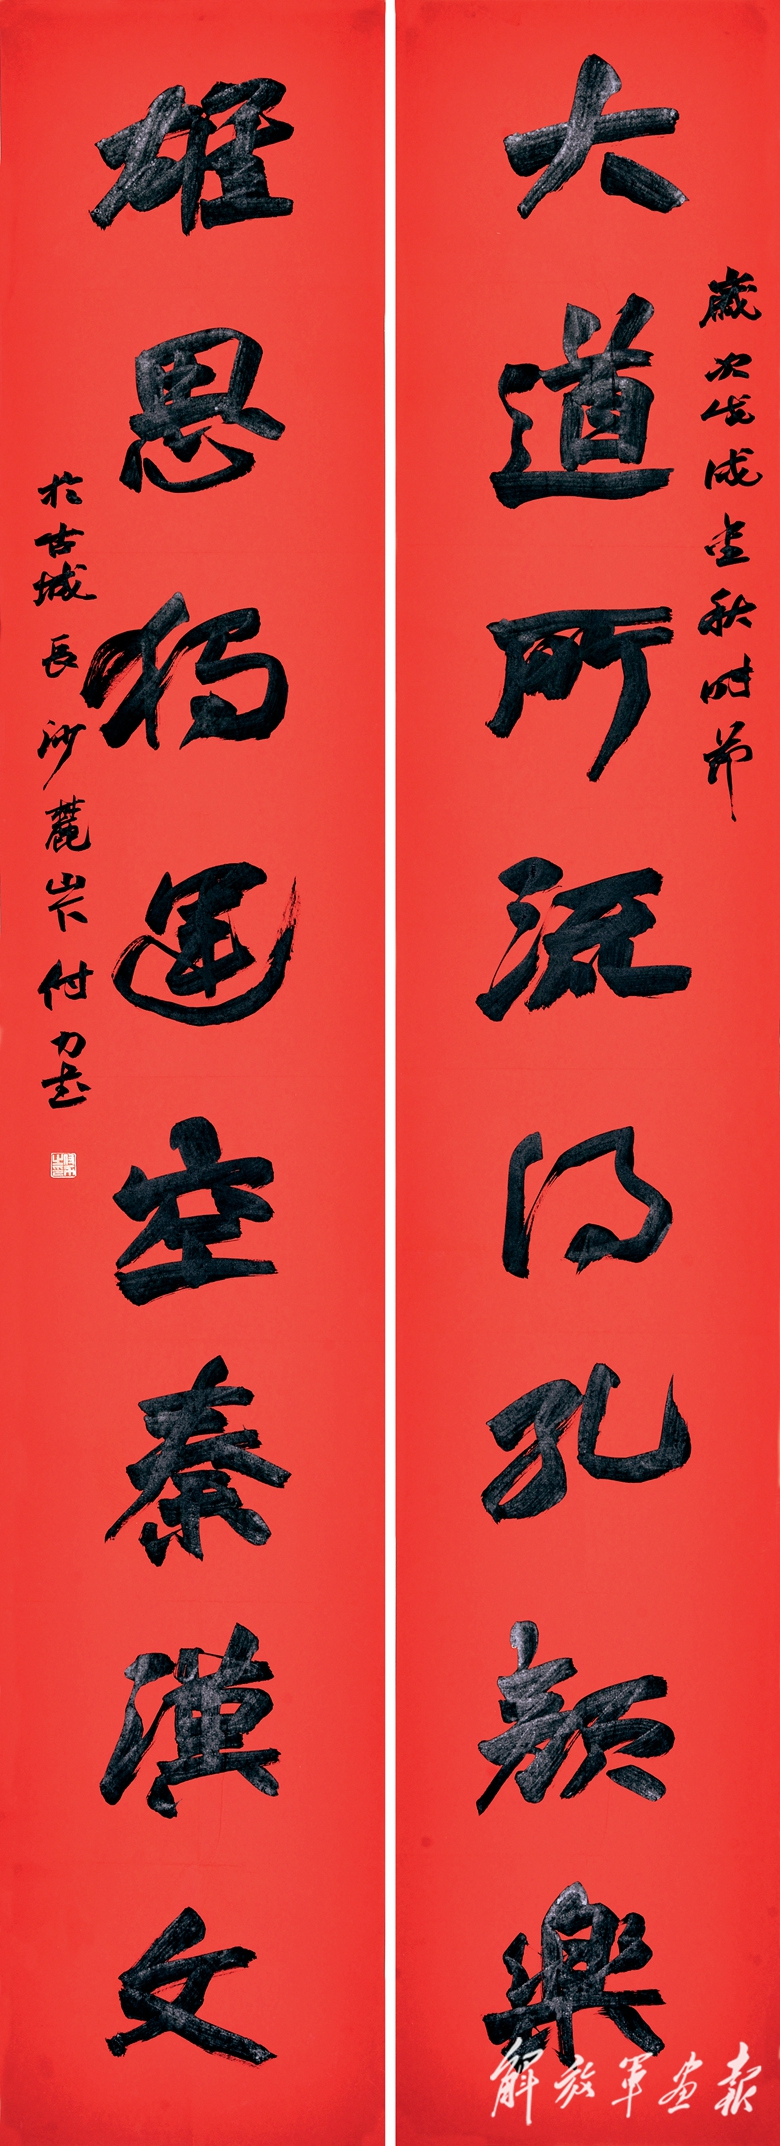 大道所流得孔顏樂
歲次戊戌金秋時節
雄思獨運空秦漢文
於古城長沙麓山下付力書
解放軍畫報